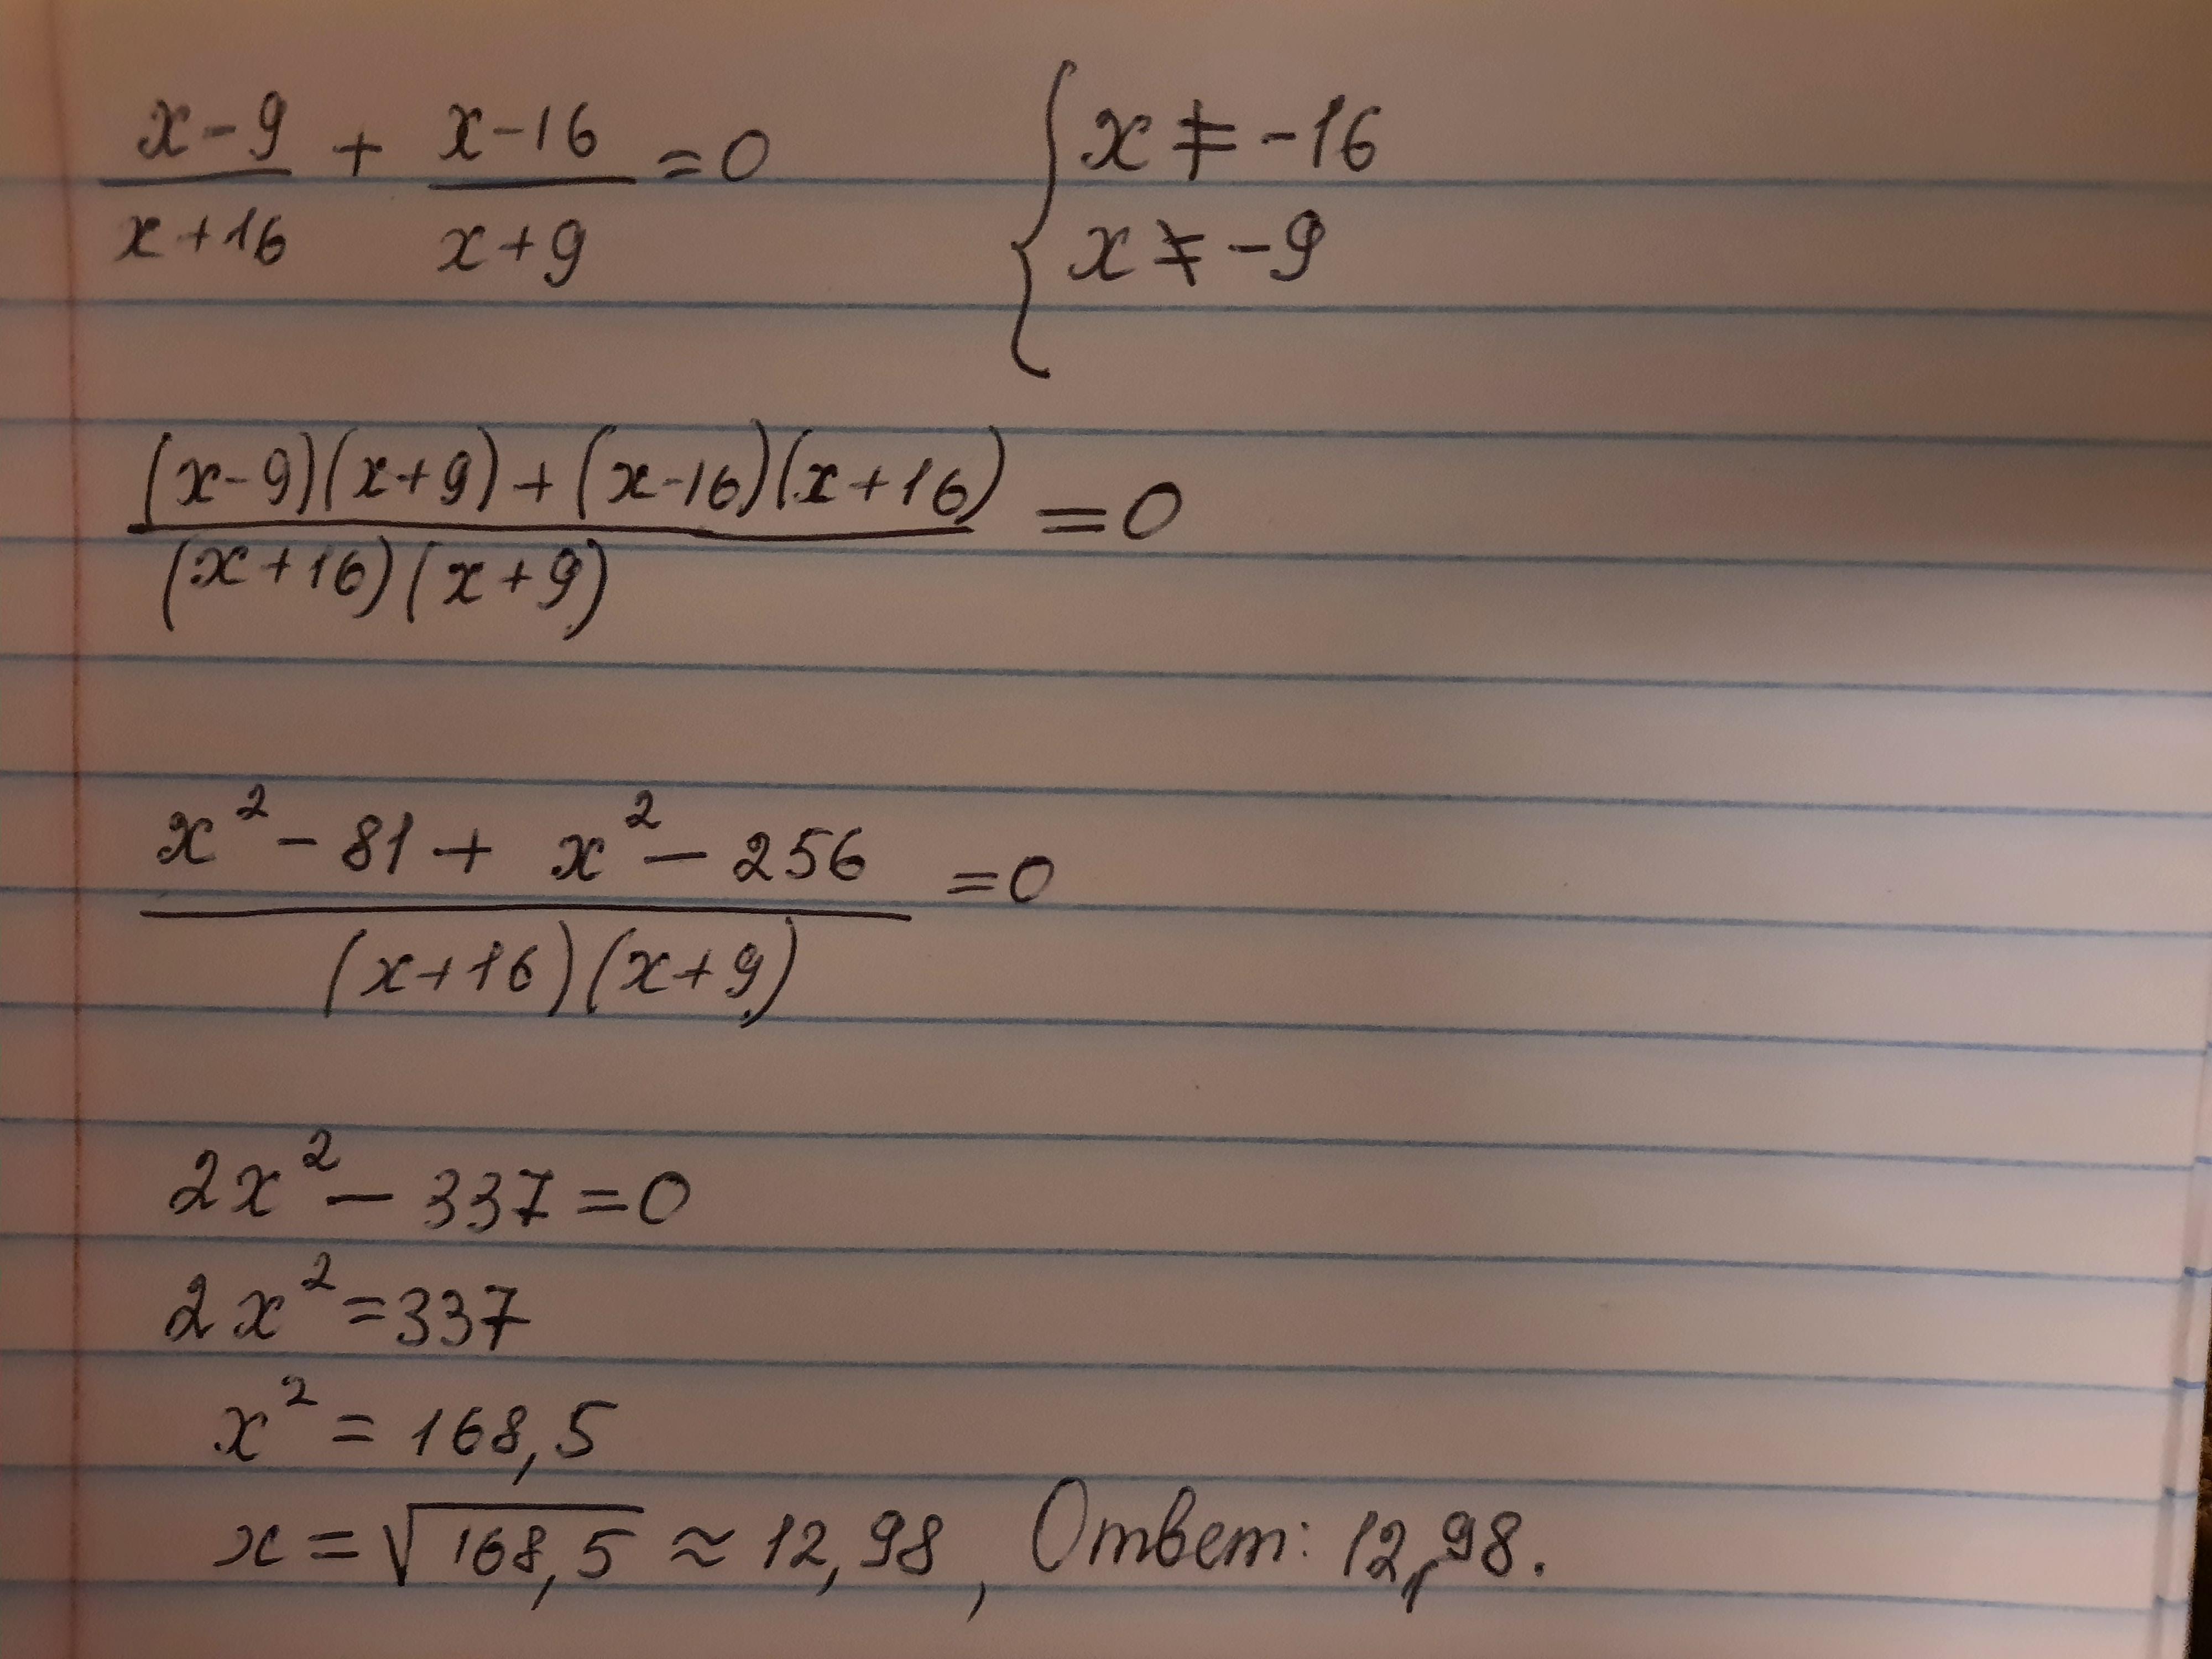 (x-9)/(x+16) + (x-16)/(x+9) = 0 { x ≠ -16
x ≠ -9
((x-9)(x+9)+(x-16)(x+16))/((x+16)(x+9)) = 0
(x² - 81 + x² - 256)/((x+16)(x+9)) = 0
2x² - 337 = 0
2x² = 337
x² = 168,5
x = √168,5 ≈ 12,98, Ответ: 12,98.